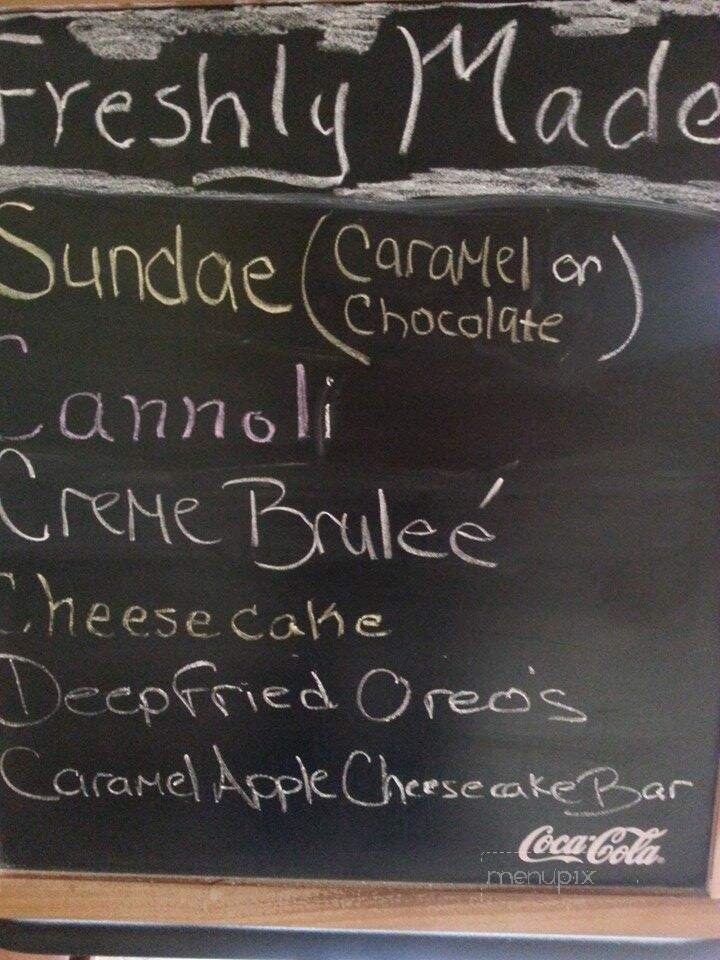 Freshly Made
Sundae (Caramel or
Chocolate)
Cannoli
Creme Bruleé
Cheesecake
Deep Fried Oreo's
Caramel Apple Cheesecake Bar
Coca-Cola
menupix